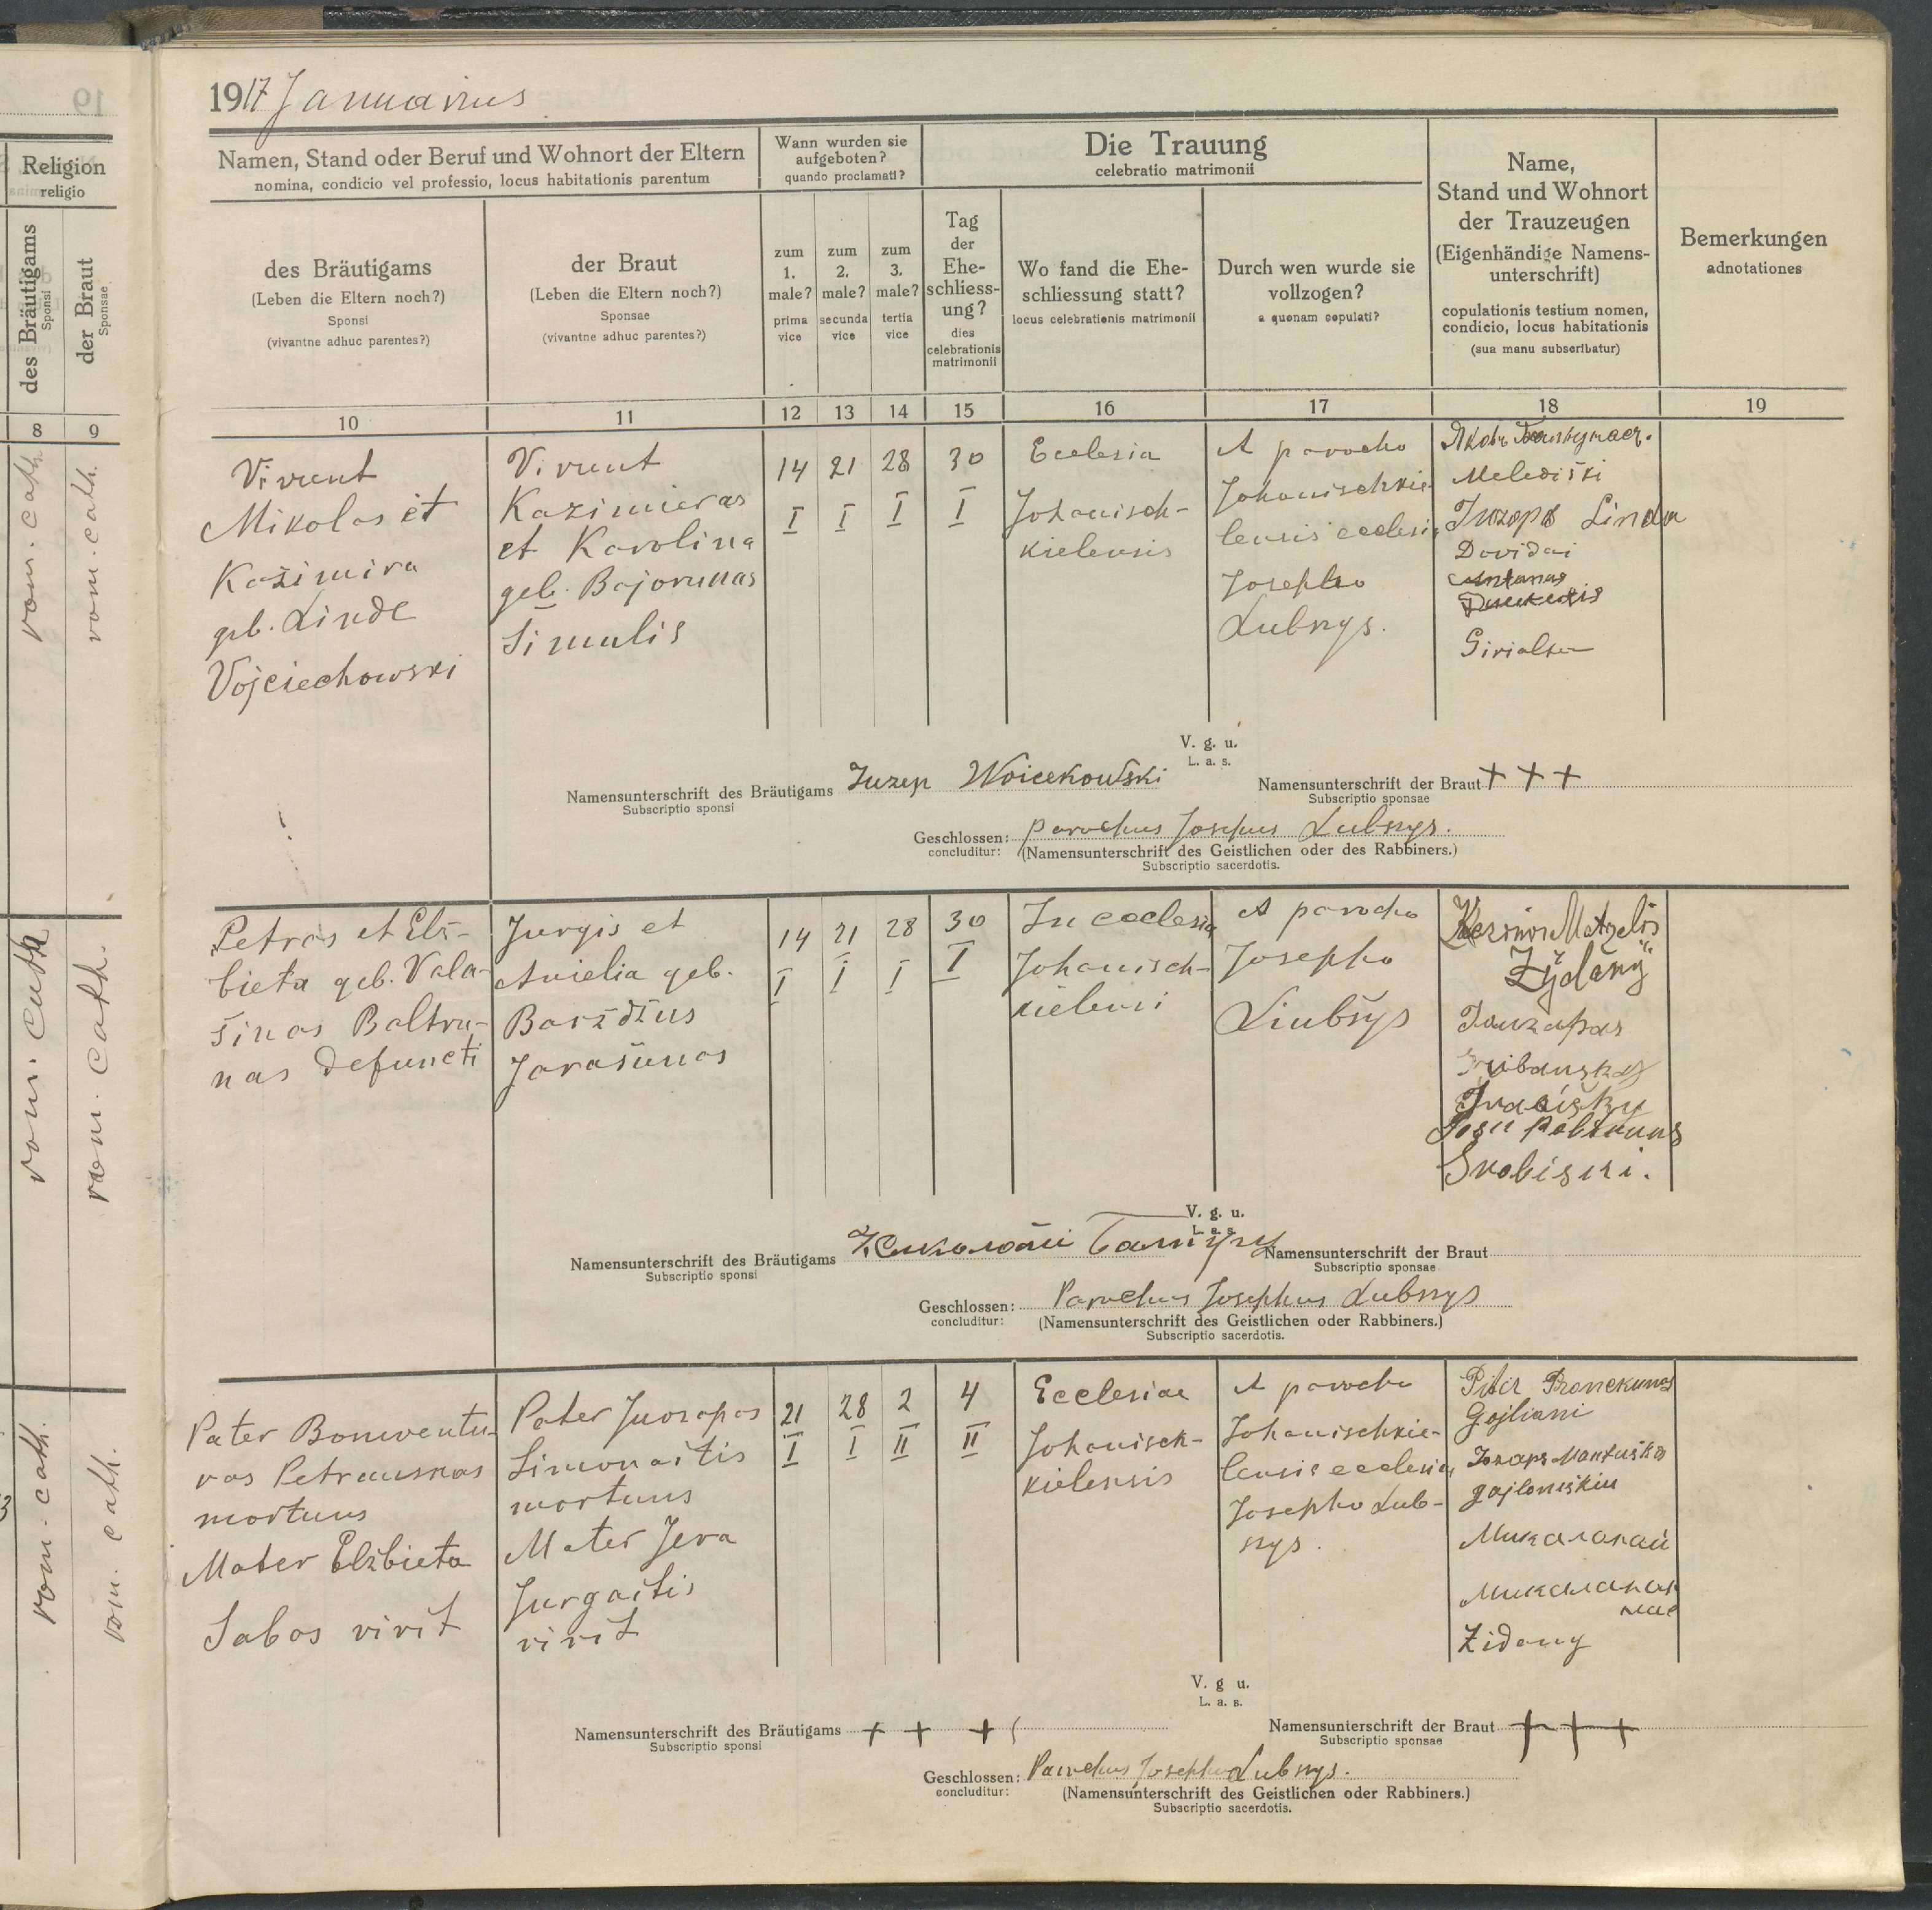 1917 Januarius
Religion
religio
des Bräutigams
Sponsi
der Braut
Sponsae
8
9
rom. cath.
rom. cath.
rom. cath.
rom. cath.
rom. cath.
rom. cath.
Namen, Stand oder Beruf und Wohnort der Eltern
nomina, condicio vel professio, locus habitationis parentum
des Bräutigams
(Leben die Eltern noch?)
Sponsi
(vivantne adhuc parentes?)
der Braut
(Leben die Eltern noch?)
Sponsae
(vivantne adhuc parentes?)
Wann wurden sie
aufgeboten?
quando proclamati?
zum
1.
male?
prima
vice
zum
2.
male?
secunda
vice
zum
3.
male?
tertia
vice
Die Trauung
celebratio matrimonii
Tag
der
Ehe-
schliess-
ung?
dies
celebrationis
matrimonii
Wo fand die Ehe-
schliessung statt?
locus celebrationis matrimonii
Durch wen wurde sie
vollzogen?
a quonam copulati?
Name,
Stand und Wohnort
der Trauzeugen
(Eigenhändige Namens-
unterschrift)
copulationis testium nomen,
condicio, locus habitationis
(sua manu subscribatur)
Bemerkungen
adnotationes
10 11 12 13 14 15 16 17 18 19
Vivunt
Mikolas et
Kazimira
geb. Linde
Vojciechowski
Vivunt
Kazimieras
et Karolina
geb. Bajorunas
Simulis
14 21 28 30
I I I I
Ecclesia
Johanisch-
kielensis
A parocho
Johanischkie-
lensis ecclesia
Josepho
Lubsys.
Melediški
Juzops Linda
Dovidai
Antanas
V. g. u.
L. a. s.
Namensunterschrift des Bräutigams Juzep Woicekowski
Subscriptio sponsi
Namensunterschrift der Braut + + +
Subscriptio sponsae
Geschlossen: parochus Josephus Lubsys.
concluditur: (Namensunterschrift des Geistlichen oder des Rabbiners.)
Subscriptio sacerdotis.
Petras et Elz-
bieta geb. Vala-
šinas Baltru-
nas defuncti
Jurgis et
Anielia geb.
Barzdžius
Jarašunas
14 21 28 30
I I I I
In ecclesia
Johanisch-
kielensi
A parocho
Josepho
Liubšys
Juozapas
V. g. u.
L. a. s.
Namensunterschrift des Bräutigams
Subscriptio sponsi
Namensunterschrift der Braut
Subscriptio sponsae
Geschlossen: Parochus Josephus Lubsys
concluditur: (Namensunterschrift des Geistlichen oder Rabbiners.)
Subscriptio sacerdotis.
Pater Bonwentu-
ras Petrauskas
mortuus
Mater Elžbieta
Sabas vivit
Pater Juozapas
Simonaitis
mortuus
Mater Jeva
Jurgaitis
vivit
21 28 2 4
I I II II
Ecclesiae
Johanisch-
kielensis
A parocho
Johanischkie-
lensis ecclesia
Josepho Lub-
sys.
Gajliani
Gajloniskiu
Микалакай
Zidony
V. g u.
L. a. s.
Namensunterschrift des Bräutigams + + +
Subscriptio sponsi
Namensunterschrift der Braut + + +
Subscriptio sponsae
Geschlossen: Parochus Josephus Lubsys.
concluditur: (Namensunterschrift des Geistlichen oder Rabbiners.)
Subscriptio sacerdotis.